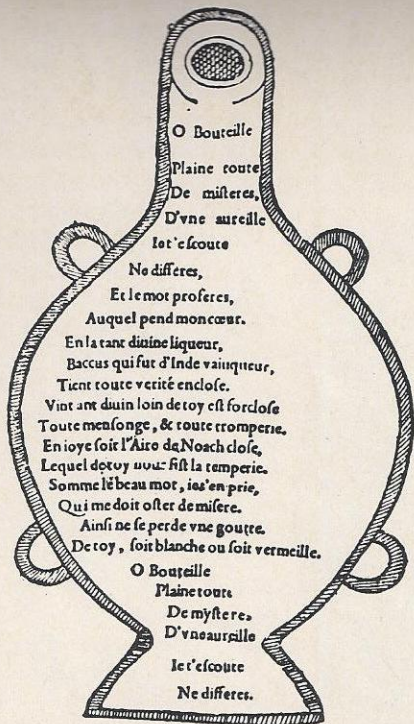 O Bouteille
Plaine toute
De misteres,
D'vne aureille
Iet'escoute
Ne differes,
Et le mot proferes,
Auquel pend moncœur.
En la tant diuine liqueur,
Baccus qui fut d'Inde vainqueur,
Tient toute verité enclose.
Vint ant diuin loin de toy est forclose
Toute mensonge, & toute tromperie.
En ioye soit l'Aire de Noach close,
Lequel de toy nous fist la temperie.
Somme le beau mot, ie t'en prie,
Qui me doit oster de misere.
Ainsi ne se perde vne goutte.
De toy, soit blanche ou soit vermeille.
O Bouteille
Plaine toute
De mysteres
D'vne aureille
Ie t'escoute
Ne differes.